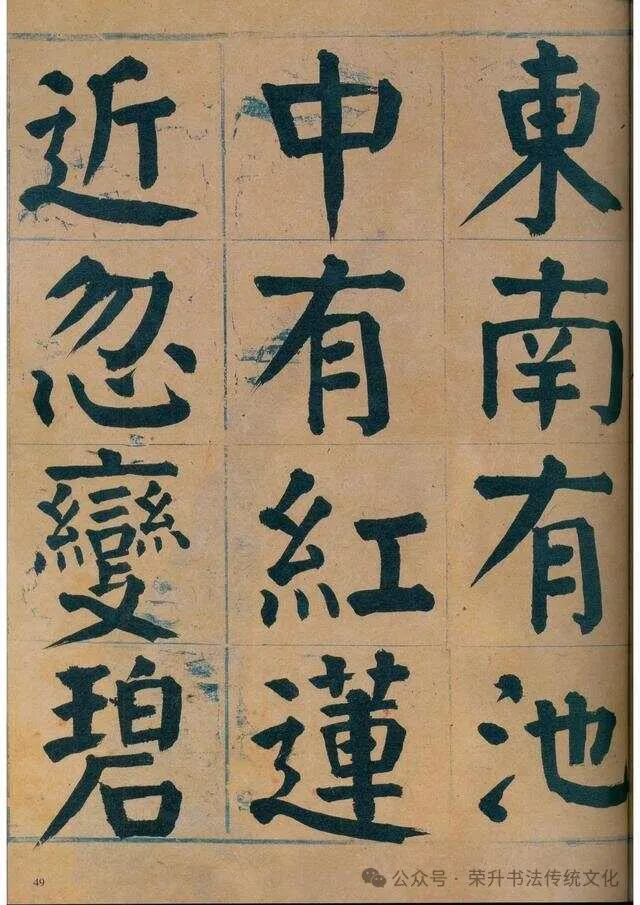 東南有池
中有紅蓮
近忽變碧
49
公众号·荣升书法传统文化